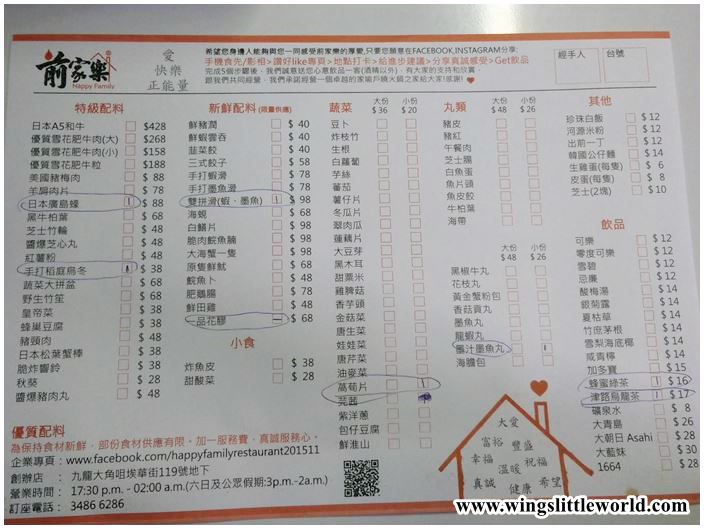 前家樂
Happy Family
愛
快樂
正能量
希望您身邊人能夠與您一同感受前家樂的厚愛,只要您願意在FACEBOOK,INSTAGRAM分享:
手機食先/影相>讚好like專頁>地點打卡>給進步建議>分享真誠感受>Get飲品
完成5個步驟後，我們誠意送您心意飲品一客(酒精以外)，有大家的支持和欣賞，
經手人
台號
特級配料
日本A5和牛 $428
優質雪花肥牛肉(大) $268
優質雪花肥牛肉(小) $158
優質雪花肥牛粒 $188
美國豬梅肉 $ 88
羊肩肉片 $ 78
日本廣島蠔 1 $ 88
黑牛柏葉 $ 58
芝士竹輪 $ 48
醬爆芝心丸 $ 48
紅薯粉 $ 48
手打稻庭烏冬 $ 38
蔬菜大拼盆 $ 68
野生竹笙 $ 68
皇帝菜 $ 38
蜂巢豆腐 $ 38
豬頸肉 $ 48
日本松葉蟹棒 $ 38
脆炸響鈴 $ 38
秋葵 $ 28
醬爆豬肉丸 $ 48
新鮮配料 (限量供應)
鮮豬潤 $ 40
鮮蝦雲吞 $ 40
韮菜餃 $ 40
三式餃子 $ 58
手打蝦滑 $ 78
手打墨魚滑 $ 78
雙拼滑(蝦、墨魚) 1 $ 98
海蜆 $ 68
白鱔片 $ 98
脆肉鯇魚腩 $ 98
大海蟹一隻 $ 98
原隻鮮魷 $ 68
鯇魚卜 $ 48
肥鵝腸 $ 78
鮮田雞 $ 48
一品花膠 $ 68
小食
炸魚皮 $ 38
甜酸菜 $ 28
蔬菜
大份 $ 36
小份 $ 20
豆卜
炸枝竹
生根
白蘿蔔
芋絲
蕃茄
薯仔片
冬瓜片
翠肉瓜
蓮藕片
大豆芽
黑木耳
甜粟米
雞脾菇
香芋頭
金菇菜
唐生菜
娃娃菜
唐芹菜
油麥菜
萵筍片 1
芫茜
紫洋蔥
包仔豆腐
鮮淮山
丸類
大份 $ 48
小份 $ 26
豬皮
豬紅
午餐肉
芝士腸
白魚蛋
魚片頭
魚皮餃
牛柏葉
海帶
大份 $ 48
小份 $ 26
黑椒牛丸
花枝丸
黃金蟹粉包
香菇貢丸
墨魚丸
龍蝦丸
墨汁墨魚丸 1
海膽包
其他
珍珠白飯 $ 12
河源米粉 $ 12
出前一丁 $ 12
韓國公仔麵 $ 14
生雞蛋(每隻) $ 6
皮蛋(每隻) $ 8
芝士(2塊) $ 10
飲品
可樂 $ 12
零度可樂 $ 12
雪碧 $ 12
忌廉 $ 12
酸梅湯 $ 14
銀菊露 $ 14
夏枯草 $ 14
竹庶茅根 $ 14
雪梨海底椰 $ 14
咸青檸 $ 14
加多寶 $ 15
蜂蜜綠茶 1 $ 16
津路烏龍茶 1 $ 17
礦泉水 $ 8
大青島 $ 26
大朝日 Asahi $ 28
大藍妹 $ 30
1664 $ 28
大愛
富裕
豐盛
幸福
溫暖
祝福
真誠
健康
希望
優質配料
為保持食材新鮮，部份食材供應有限。加一服務費，真誠服務心。
企業專頁：www.facebook.com/happyfamilyrestaurant201511
創辦店 ： 九龍大角咀埃華街119號地下
營業時間： 17:30 p.m. - 02:00 a.m.(六日及公眾假期:3p.m.-2a.m.)
訂座電話： 3486 6286
www.wingslittleworld.com